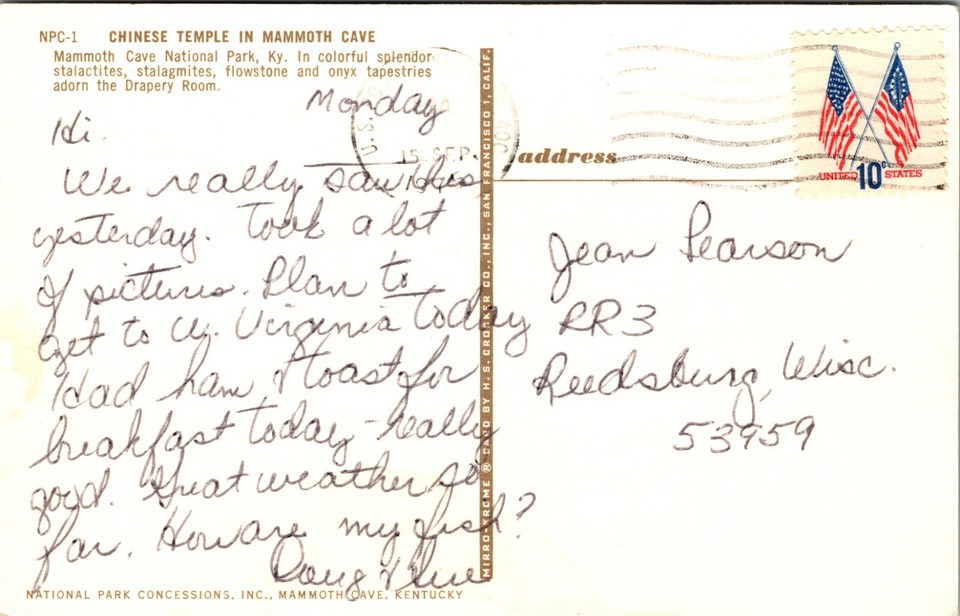 NPC-1 CHINESE TEMPLE IN MAMMOTH CAVE
Mammoth Cave National Park, Ky. In colorful splendor
stalactites, stalagmites, flowstone and onyx tapestries
adorn the Drapery Room.
Monday
Hi.
We really saw this
yesterday. Took a lot
of pictures. Plan to
get to W. Virginia today
Had ham & toast for
breakfast today - really
good. Great weather so
far. How are my fish?
Doug &
NATIONAL PARK CONCESSIONS, INC., MAMMOTH CAVE, KENTUCKY
MIRRO-KROME ® CARD BY H. S. CROCKER CO., INC., SAN FRANCISCO 1, CALIF.
U.S.
15 SEP
address
UNITED 10c STATES
Jean Pearson
RR3
Reedsburg, Wisc.
53959